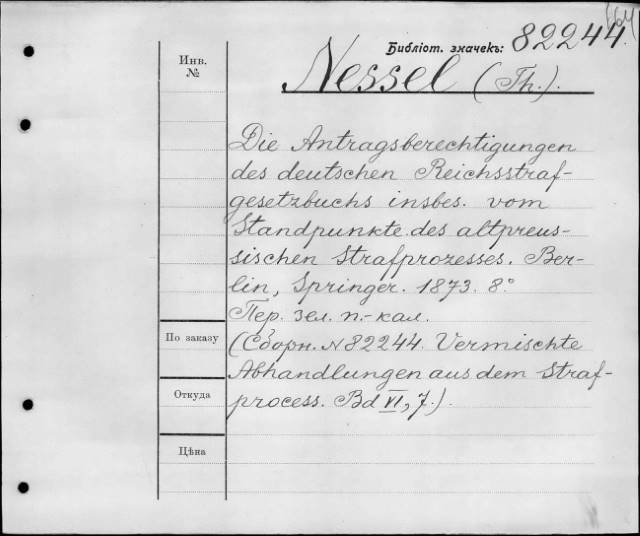 Библіот. значекъ: 82244.
Инв.
№
Nessel (Th.).
Die Antragsberechtigungen
des deutschen Reichsstraf-
gesetzbuchs insbes. vom
Standpunkte des altpreus-
sischen Strafprozesses. Ber-
lin, Springer. 1873. 8°
Пер. зел. п.-кал.
По заказу
(Сборн. N 82244. Vermischte
Abhandlungen aus dem Straf-
process. Bd VI, 7.)
Откуда
Цѣна